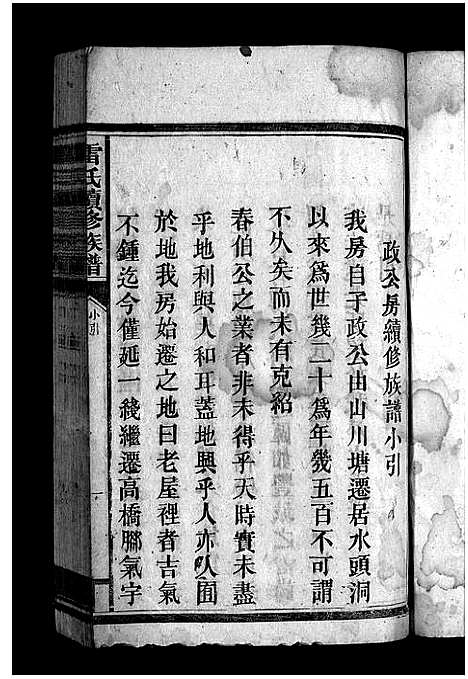 政公房續修族譜小引
我房自子政公由山川塘遷居水頭洞
以來為世幾二十為年幾五百不可謂
不久矣而未有克紹
春伯公之業者非未得乎天時實未盡
乎地利與人和耳蓋地興乎人亦人囿
於地我房始遷之地曰老屋裡者吉氣
不鍾迄今僅延一綫繼遷高橋腳氣字
雷氏續修族譜
小引